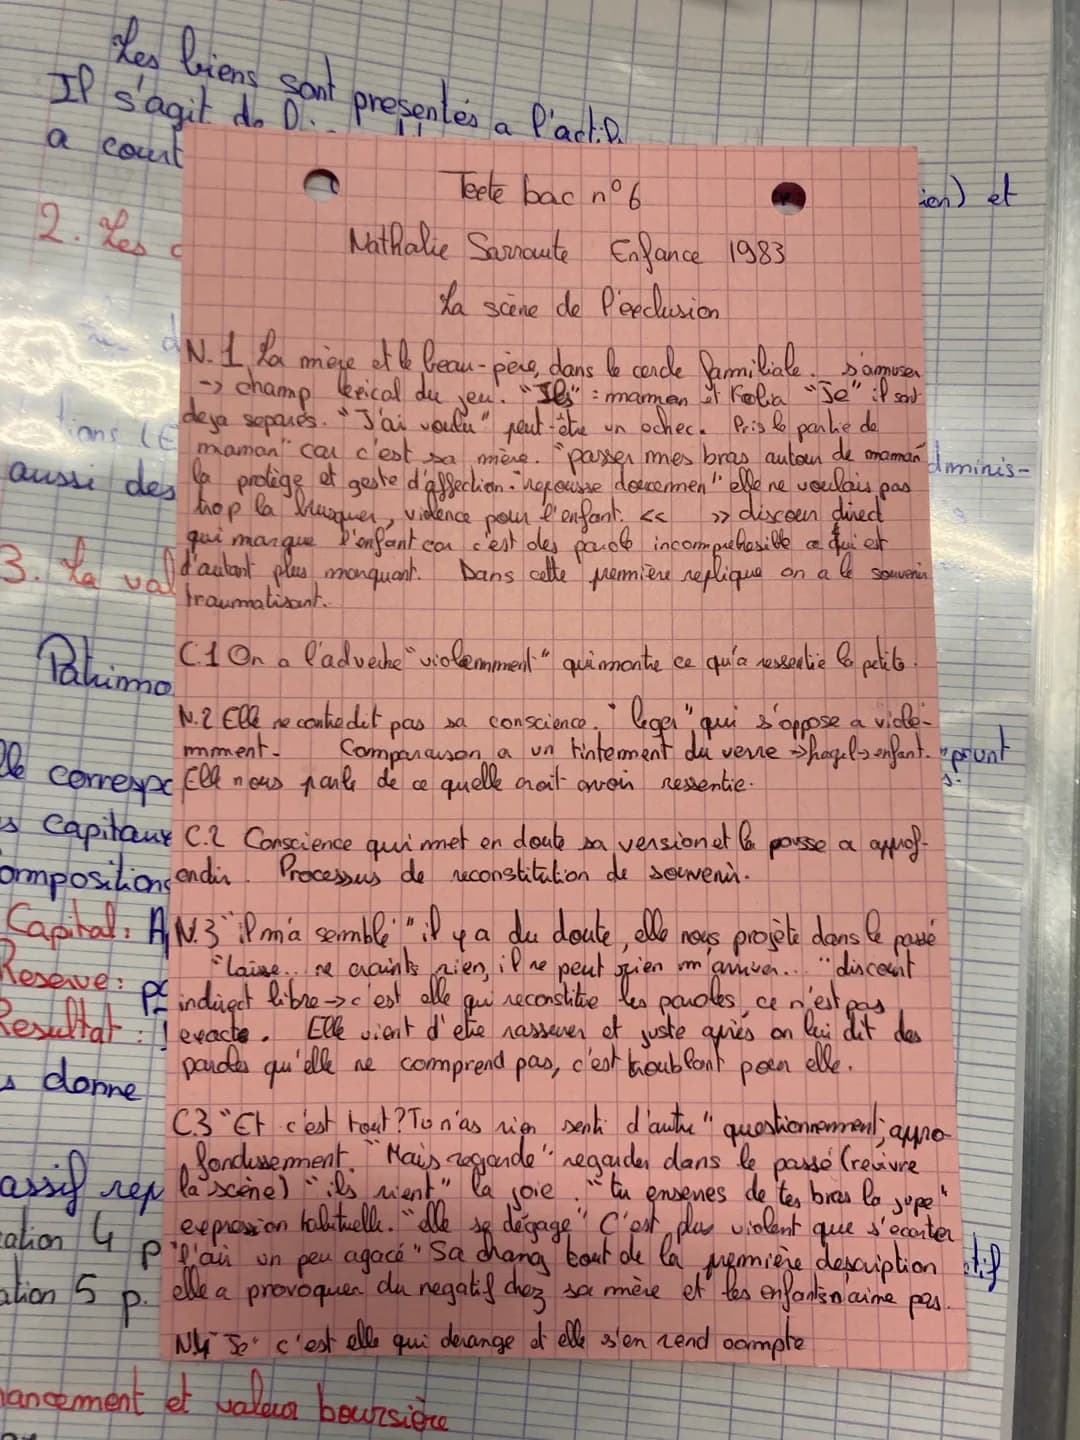 Les biens sont presentés a l'actif.
Il s'agit de
a court
ien) et
2. Les
aussi des
dminis-
3. La val
Patrimo
lle correspo
prunt
s capitaux
ompositions
Capital : A
Reserve : po
Resultat :
s donne
assif rep
cation 4 p
ation 5 p.
tif
nancement et valeur boursière
Texte bac n°6
Nathalie Sarraute Enfance 1983
La scène de l'exclusion
N.1 La mère et le beau-père, dans le cercle familiale. s'amuser
-> champ lexical du jeu. "Ils" : maman et Kolia "Je" il sont
deja separés. "J'ai voulu" peut-être un echec. Pris le partie de
maman" car c'est sa mère. "passer mes bras autour de maman"
la protège et geste d'affection. "repousse doucemen" elle ne voulais pas
trop la brusquer, violence pour l'enfant. << >> discour direct
qui marque l'enfant car c'est des parole incomprehesible ce qui est
d'autant plus marquant. Dans cette première replique on a le souvenir
traumatisant.
C.1 On a l'adverbe "violemment" qui montre ce qu'a ressentie la petite.
N.2 Elle ne contredit pas sa conscience. "leger" qui s'oppose a viole-
mment. Comparaison a un tintement du verre -> fragil -> enfant.
Elle nous parle de ce quelle croit avoir ressentie.
C.2 Conscience qui met en doute sa version et la pousse a approf-
ondir. Processus de reconstitution de souvenir.
N.3 "il m'a semblé" il y a du doute, elle nous projète dans le passé
"Laisse.. ne craints rien, il ne peut rien m'arriver..." discourt
indirect libre -> c'est elle qui reconstitue les paroles, ce n'est pas
exacte. Elle vient d'etre rassurer et juste après on lui dit des
paroles qu'elle ne comprend pas, c'est troublant pour elle.
C.3 "Et c'est tout ? Tu n'as rien senti d'autre" questionnement, appro-
fondissement. "Mais regarde" regarder dans le passé (revivre
la scène) "ils rient" la joie. "tu enserres de tes bras la jupe"
expression habituelle. "elle se dégage" C'est plus violent que s'ecarter
"l'air un peu agacé" Sa chang tout de la première description
elle a provoquer du negatif chez sa mère et les enfants n'aime pas.
N4 "Je" c'est elle qui derange et elle s'en rend compte